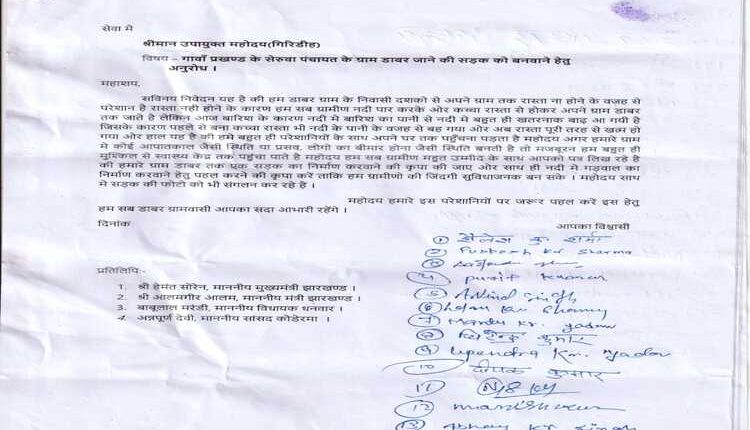 सेवा मे
श्रीमान उपायुक्त महोदय(गिरिडीह)
विषय – गावाँ प्रखण्ड के सेरुवा पंचायत के ग्राम डाबर जाने की सड़क को बनवाने हेतु
अनुरोध ।
महाशप,
सविनय निवेदन यह है की हम डाबर ग्राम के निवासी दशको से अपने ग्राम तक रास्ता ना होने के वजह से
परेशान है रास्ता नही होने के कारण हम सब ग्रामीण नदी पार करके और कच्चा रास्ता से होकर अपने ग्राम डाबर
तक जाते है लेकिन आज बारिश के कारण नदी मे बारिश का पानी से नदी मे बहुत ही खतरनाक बाढ़ आ गयी है
जिसके कारण पहले से बना कच्चा रास्ता भी नदी के पानी के वजह से बह गया और अब रास्ता पूरी तरह से खत्म हो
गया और हाल यह है की हमे बहुत ही परेशानियों के साथ अपने घर तक पहुँचना पड़ता है महोदय अगर हमारे ग्राम
मे कोई आपातकाल जैसी स्थिति या प्रसव, लोगो का बीमार होना जैसी स्थिति बनती है तो मजबूरन हम बहुत ही
मुश्किल से स्वास्थ्य केंद्र तक पहुंचा पाते है महोदय हम सब ग्रामीण महुत उम्मीद के साथ आपको पत्र लिख रहे है
की हमारे ग्राम डाबर तक एक सड़क का निर्माण करवाने की कृपा की जाए और साथ ही नदी मे गड़वाल का
निर्माण करवाने हेतु पहल करने की कृपा करें ताकि हम ग्रामीणो की जिंदगी सुविधाजनक बन सके । महोदय साथ
मे सड़क की फोटो को भी संगलन कर रहे है ।
महोदय हमारे इस परेशानियों पर जरूर पहल करें इस हेतु
हम सब डाबर ग्रामवासी आपका सदा आभारी रहेंगे ।
दिनांक आपका विश्वासी
① शैलेश कु शर्मा
② kr sharma
③
④ punit kumar
⑤ Arvind singh
⑥
⑦ kr. yadav
⑧ कुमार
⑨ Upendra Kr. Yadav
⑩ दीपक कुमार
⑪
⑫
⑬ Abhay kr singh
प्रतिलिपि:-
1. श्री हेमंत सोरेन, माननीय मुख्यमंत्री झारखण्ड ।
2. श्री आलमगीर आलम, माननीय मंत्री झारखण्ड ।
3. बाबूलाल मरंडी, माननीय विधायक धनवार ।
4. अन्नपूर्ण देवी, माननीय सांसद कोडेरमा ।